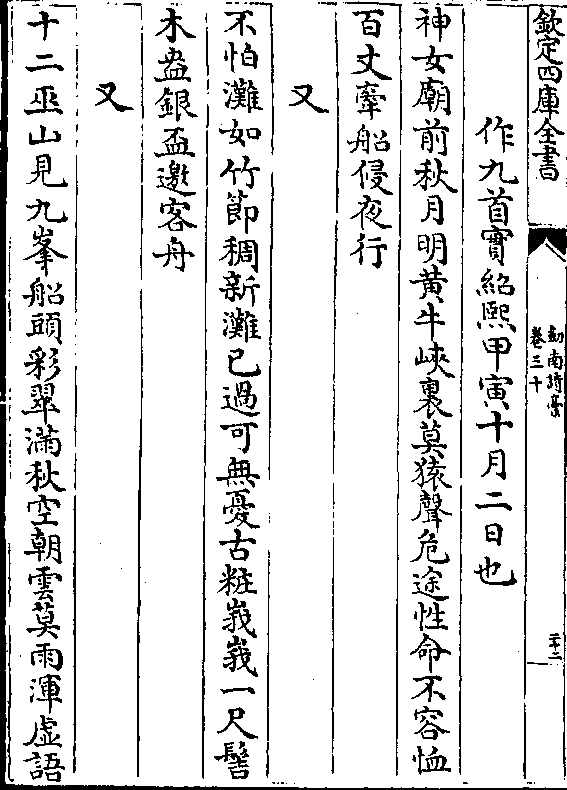 欽定四庫全書
劒南詩藁
卷三十
二十二
作九首實紹熙甲寅十月二日也
神女廟前秋月明黄牛峽裏莫猿聲危途性命不容恤
百丈牽船侵夜行
又
不怕灘如竹節稠新灘已過可無憂古粧峩峩一尺髻
木盎銀盃邀客舟
又
十二巫山見九峯船頭彩翠滿秋空朝雲莫雨渾虛語